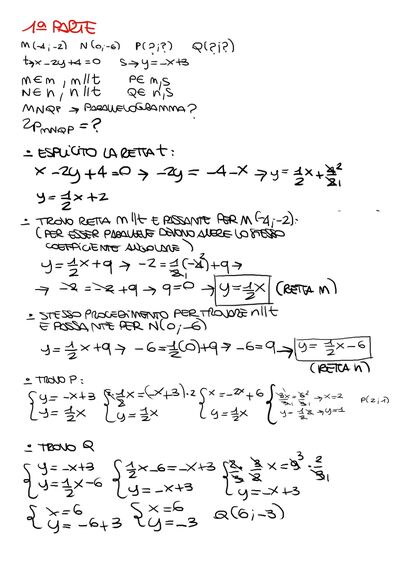 1ª PARTE
M(-4;-2) N(0;-6) P(?;?) Q(?;?)
t→x-2y+4=0 S→y=-x+3
m∈m, m//t P∈m,s
N∈n, n//t Q∈n,s
MNQP → PARALLELOGRAMMA?
2P MNQP = ?
- ESPLICITO LA RETTA t:
x-2y+4=0 → -2y=-4-x → y=1/2x+4²/2₁
y=1/2x+2
- TROVO RETTA m//t E PASSANTE PER M(-4;-2):
(PER ESSER PARALLELE DEVONO AVERE LO STESSO
COEFFICIENTE ANGOLARE)
y=1/2x+q → -2=1/2₁(-4²)+q →
→ -2=-2+q → q=0 → y=1/2x (RETTA m)
- STESSO PROCEDIMENTO PER TROVARE n//t
E PASSANTE PER N(0;-6)
y=1/2x+q → -6=1/2(0)+q → -6=q → y=1/2x-6
(RETTA n)
- TROVO P:
{y=-x+3 {2·1/2x=(-x+3)·2 {x=-2x+6 {3x/3₁=6²/3₁ → x=2
{y=1/2x {y=1/2x {y=1/2x {y=1/2·2 → y=1 P(2;1)
- TROVO Q
{y=-x+3 {1/2x-6=-x+3 {2/3·3/2x=9³·2/3₁
{y=1/2x-6 {y=-x+3 {y=-x+3
{x=6 {x=6 Q(6;-3)
{y=-6+3 {y=-3